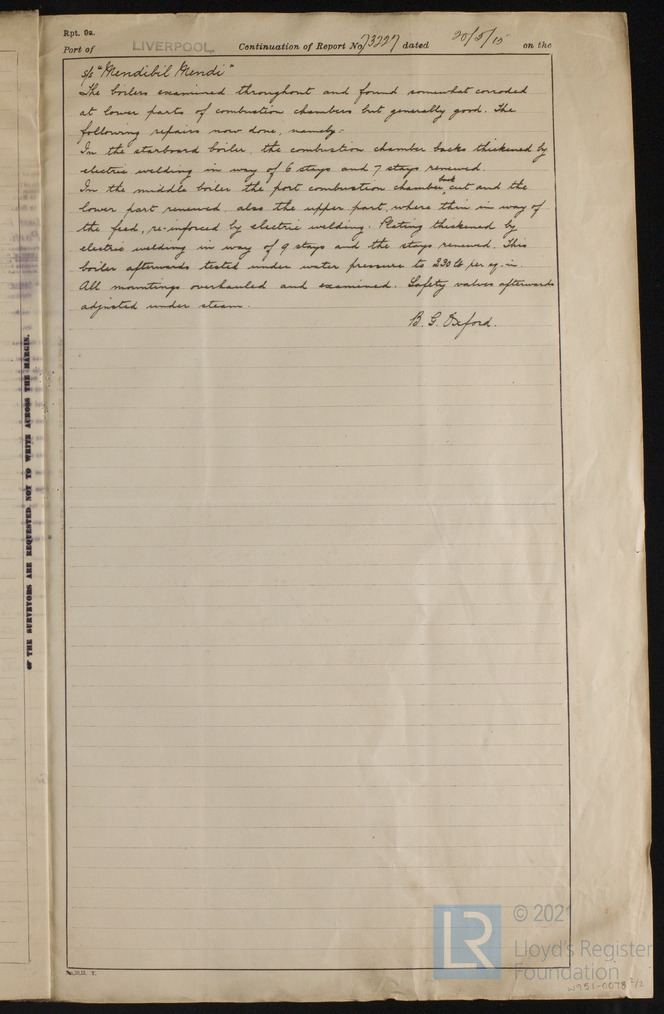 Rpt. 9a.
Port of LIVERPOOL Continuation of Report No 73227 dated 20/5/15 on the
S/S "Mendibil Mendi"
The boilers examined throughout and found somewhat corroded
at lower parts of combustion chambers but generally good. The
following repairs now done, namely:-
In the starboard boiler, the combustion chamber backs thickened by
electric welding in way of 6 stays and 7 stays renewed.
In the middle boiler the port combustion chamber back cut and the
lower part renewed, also the upper part, where thin in way of
the feed, re-inforced by electric welding. Plating thickened by
electric welding in way of 9 stays and the stays renewed. This
boiler afterwards tested under water pressure to 230 lb per sq. in.
All mountings overhauled and examined. Safety valves afterwards
adjusted under steam.
B. G. Oxford.
OF THE SURVEYORS ARE REQUESTED NOT TO WRITE ACROSS THE MARGIN.
LR
© 2021
Lloyd's Register
Foundation
W951-0078 2/2